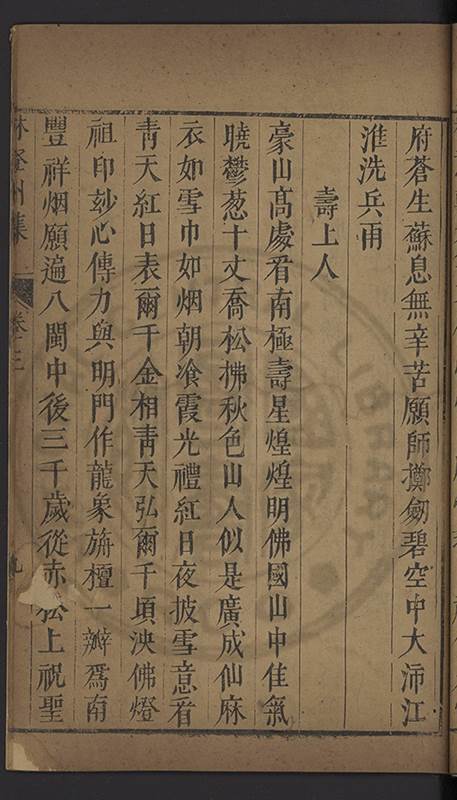 府蒼生蘇息無辛苦願師擲劒碧空中大沛江
淮洗兵雨
壽上人
豪山髙處看南極壽星煌煌明佛國山中佳氣
曉鬱葱十丈喬松拂秋色山人似是廣成仙麻
衣如雪巾如烟朝飡霞光禮紅日夜披雪意看
靑天紅日表爾千金相靑天弘爾千頃泱佛燈
祖印玅心傳力與明門作龍象旃檀一瓣爲南
豐祥烟願遍八閩中後三千歲從赤松上祝聖
林登州集
卷三
九